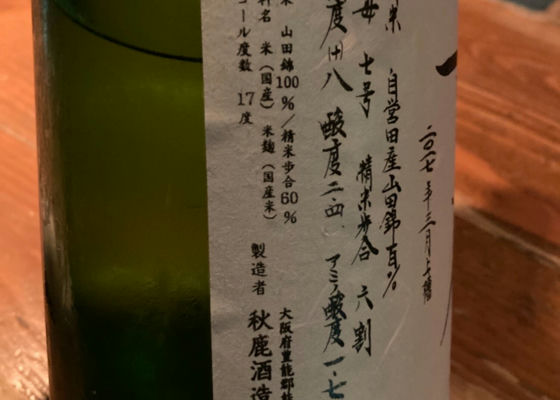 二〇一七年三月上槽
米 自営田産山田錦百%
母 七号 精米歩合 六割
度(+)八 酸度二・四 アミノ酸度一・七
米 山田錦100%/精米歩合60%
料名 米(国産)米麹(国産米)
コール度数 17度
大阪府豊能郡能
製造者 秋鹿酒造